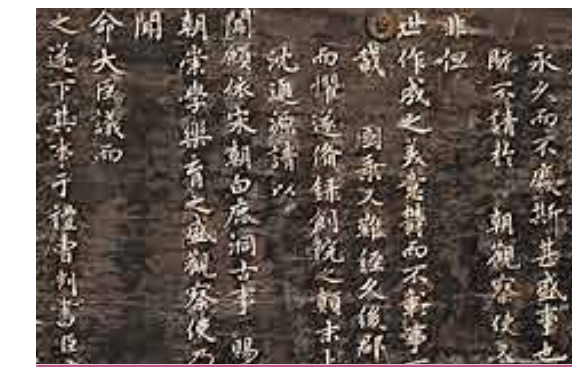 永久而不廢斯甚盛事也
不請於 朝觀察使
非但
世作成之美意鬱而不彰事
哉 國乘又難經久後郡
而懼遂備錄創院之顚末
沈通源請以
聞願依宋朝白鹿洞古事 賜
朝崇學樂育之盛觀察使乃
聞
命大臣議而
之遂下其事于禮曹判書臣